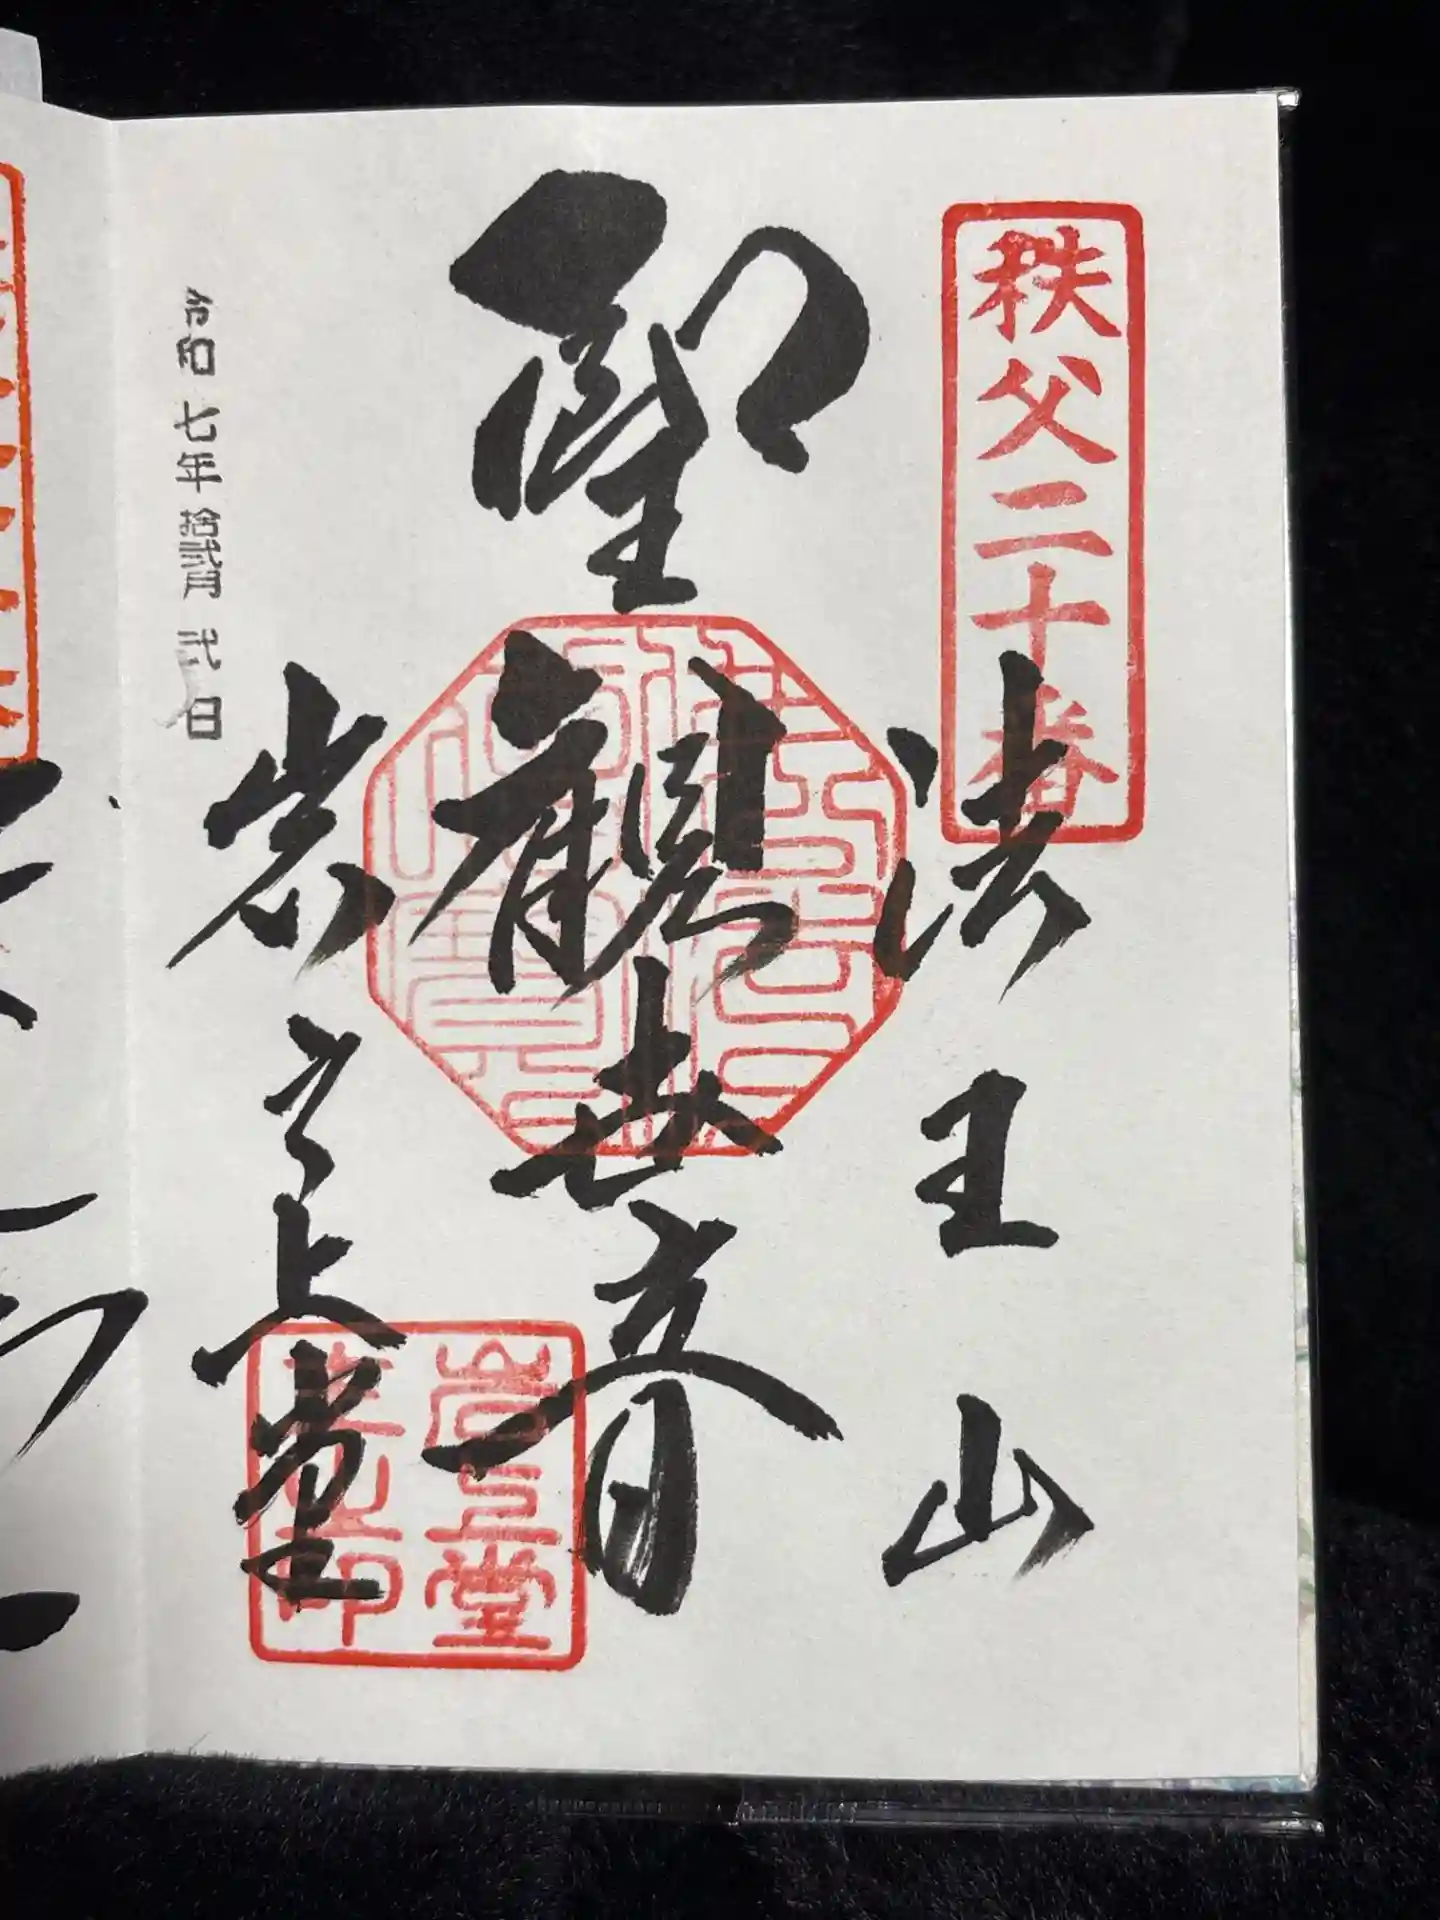 秩父二十番
法王山
聖観世音
岩之上堂
令和七年拾弐月弐日
岩上堂